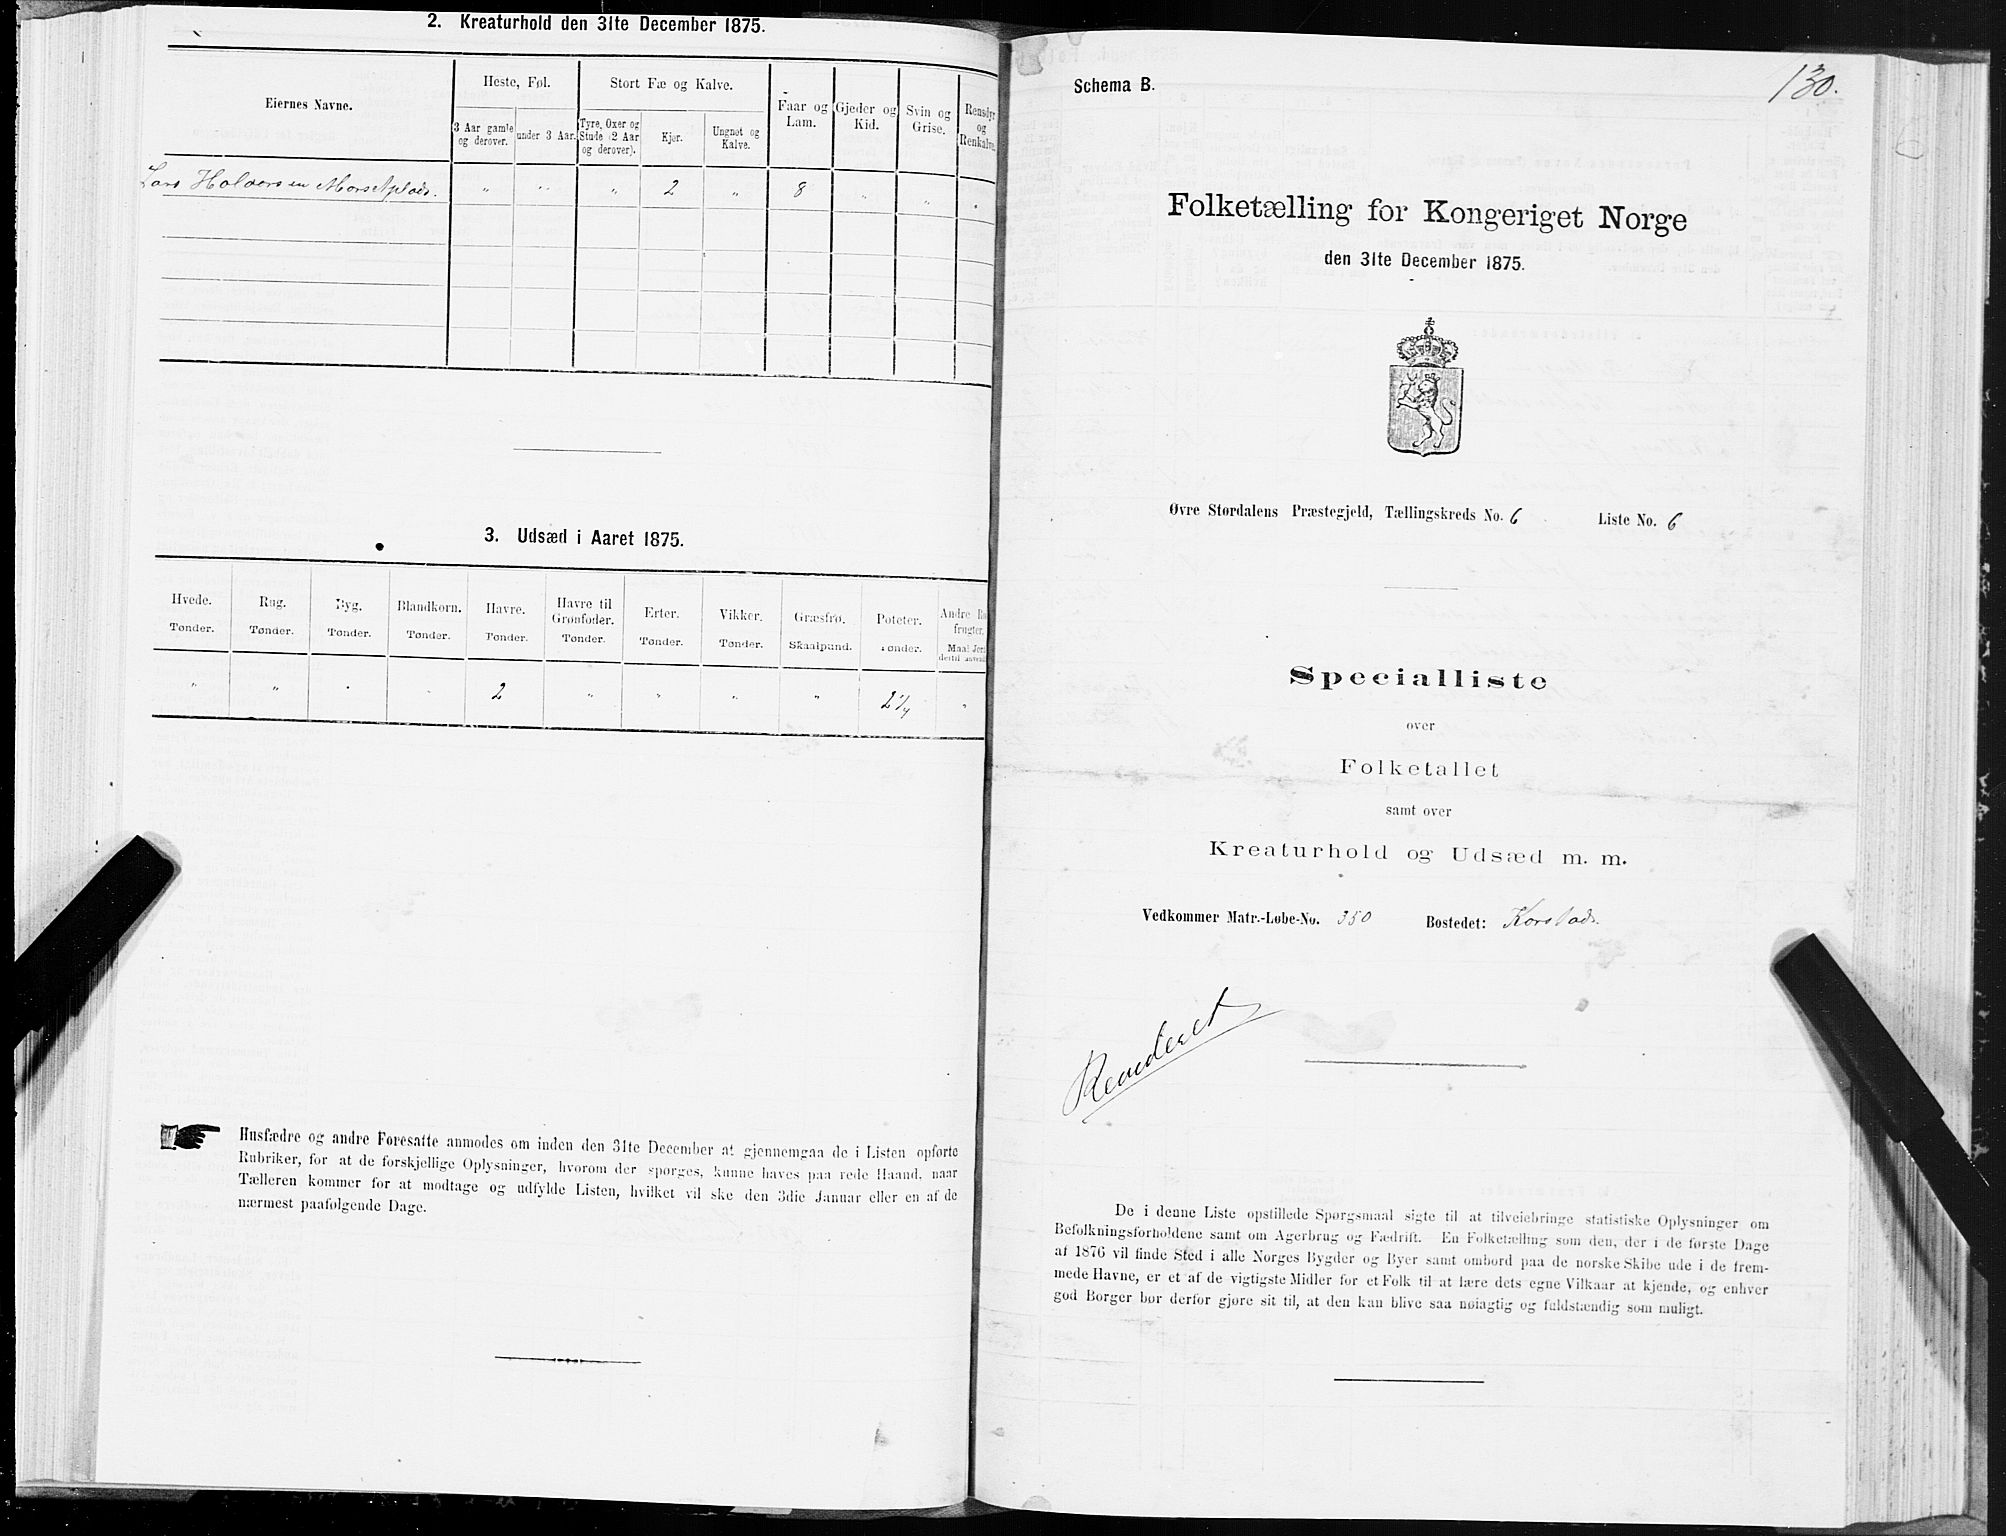 2. Kreaturhold den 31te December 1875.
Eiernes Navne.
Heste, Føl.
Stort Fæ og Kalve.
Faar og Lam.
Gjeder og Kid.
Svin og Grise.
Rensdyr og Renkalve.
3 Aar gamle og derover.
under 3 Aar.
Tyre, Oxer og Stude (2 Aar og derover).
Kjør.
Ungnøt og Kalve.
Lars Halvorsen Morsetplads. " " " 2 " 8 " "
3. Udsæd i Aaret 1875.
Hvede. Rug. Byg. Blandkorn. Havre. Havre til Grønfoder. Erter. Vikker. Græsfrø. Poteter. Andre
Tønder. Tønder. Tønder. Tønder. Tønder. Tønder. Tønder. Tønder. Skaalpund. Tønder. Maal Jord
" " " " 2 " " " " 2 1/4 "
Husfædre og andre Foresatte anmodes om inden den 31te December at gjennemgaa de i Listen opførte
Rubriker, for at de forskjellige Oplysninger, hvorom der spørges, kunne haves paa rede Haand, naar
Tælleren kommer for at modtage og udfylde Listen, hvilket vil ske den 3die Januar eller en af de
nærmest paafølgende Dage.
130.
Schema B.
Folketælling for Kongeriget Norge
den 31te December 1875.
Øvre Størdalens Præstegjeld, Tællingskreds No. 6 Liste No. 6
Specialliste
over
Folketallet
samt over
Kreaturhold og Udsæd m. m.
Vedkommer Matr.-Løbe-No. 350 Bostedet: Korstad.
Revideret
De i denne Liste opstillede Spørgsmaal sigte til at tilveiebringe statistiske Oplysninger om
Befolkningsforholdene samt om Agerbrug og Fædrift. En Folketælling som den, der i de første Dage
af 1876 vil finde Sted i alle Norges Bygder og Byer samt ombord paa de norske Skibe ude i de frem-
mede Havne, er et af de vigtigste Midler for et Folk til at lære dets egne Vilkaar at kjende, og enhver
god Borger bør derfor gjøre sit til, at den kan blive saa nøiagtig og fuldstændig som muligt.